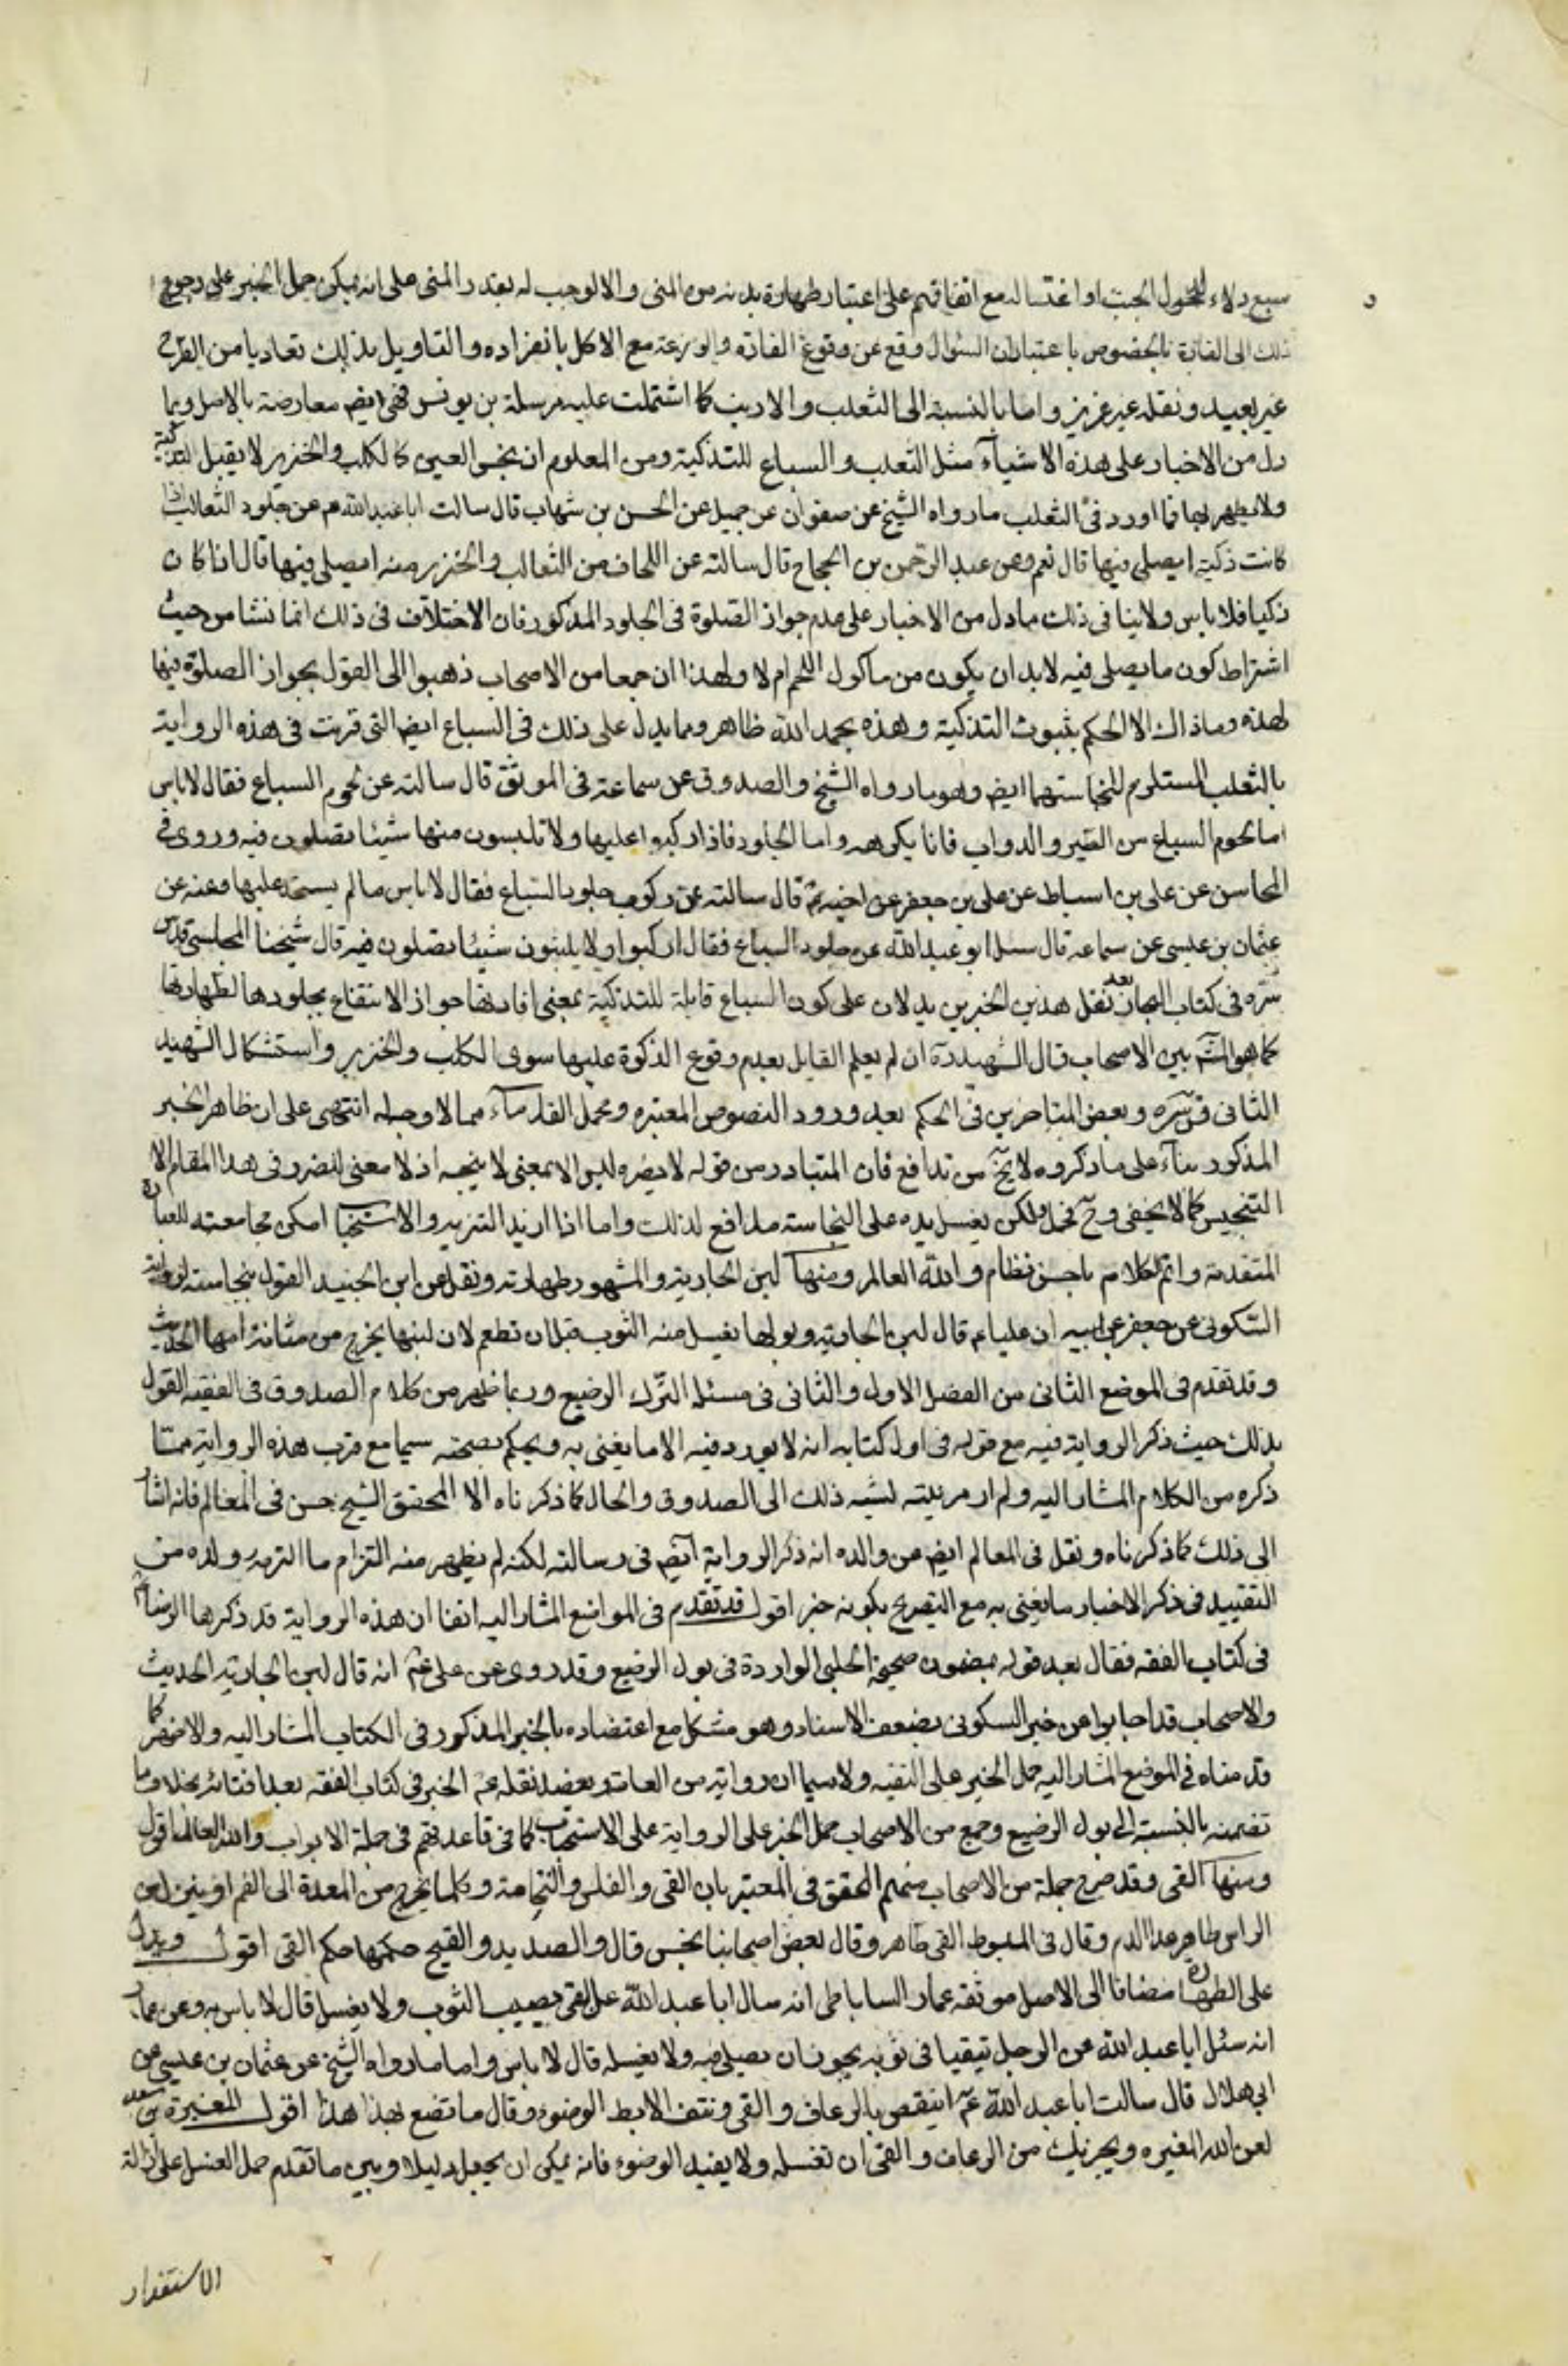 سبع دلاء لدخول الجنب او اغتساله مع اتفاقهم على اعتبار طهارة بدنه من المنى والا لوجب له بقدر المنى على انه يمكن حمل الخبر على رجوع
ذلك الى الفارة بالخصوص باعتباران السئوال وقع عن وقوع الفارة والوزغة مع الاكل بانفراده والتاويل بذلك تعاديا من الطرح
غير بعيد ونقله غير عزيز واما بالنسبة الى الثعلب والارنب كما اشتملت عليه مرسلة بن يونس فهى ايضا معارضة بالاصل وبما
دل من الاخبار على هذه الاشيآء مثل الثعلب والسباع للتذكية ومن المعلوم ان نجس العين كالكلب والخنزير لا يقبل التذكية
ولا يطهر بها فما اورد فى الثعلب ما رواه الشيخ عن صفوان عن جميل عن الحسن بن شهاب قال سالت ابا عبد الله ع عن جلود الثعالب اذا
كانت ذكية ايصلى فيها قال نعم وعن عبد الرحمن بن الحجاج قال سالته عن اللحاف من الثعالب والخنزير منه ايصلى فيها قال اذا كان
ذكيا فلا باس ولا ينافى ذلك ما دل من الاخبار على عدم جواز الصلوة فى الجلود المذكور فان الاختلاف فى ذلك انما نشا من حيث
اشتراط كون ما يصلى فيه لابد ان يكون من ماكول اللحم ام لا ولهذا ان جمعا من الاصحاب ذهبوا الى القول بجواز الصلوة فيها
لهذه وما ذاك الا الحكم بثبوت التذكية وهذه بحمد الله ظاهر ومما يدل على ذلك فى السباع ايضا التى قرنت فى هذه الرواية
بالثعلب المستلزم للنجاستهما ايضا وهو ما رواه الشيخ والصدوق عن سماعة فى الموثق قال سالته عن لحوم السباع فقال لا باس
اما لحوم السباع من الطير والدواب فانا نكرهه واما الجلود فاذا ركبوا عليها ولا تلبسون منها شيئا تصلون فيه وروى فى
المحاسن عن على بن اسباط عن على بن جعفر عن اخيه ع قال سالته عن ركوب جلود السباع فقال لا باس ما لم يسجد عليها وعنه عن
عثمان بن عيسى عن سماعه قال سئل ابو عبد الله عن جلود السباع فقال اركبوا ولا يلبثون شيئا تصلون فيه قال شيخنا المجلسى قدس
سره فى كتاب البحار بعد نقل هذين الخبرين يدلان على كون السباع قابلة للتذكية بمعنى افادتها جواز الانتفاع بجلودها لطهارتها
كما هو الش بين الاصحاب قال الشهيد ره ان لم يعلم القايل بعدم وقوع الذكوة عليها سوى الكلب والخنزير واستشكال الشهيد
الثانى ق سره وبعض المتاخرين فى الحكم بعد ورود النصوص المعتبره وعمل القدمآء مما لا وجه له انتهى على ان ظاهر الخبر
المذكور بنآء على ما ذكروه لا يخ من تدافع فان المتبادر من قوله لا يضره ليس الا بمعنى لا ينجسه اذ لا معنى للضرر فى هذا المقام الا
التنجيس كما لا يخفى وح فحمل ولكن يغسل يده على النجاسة مدافع لذلك واما اذا اريد التنزيه والاستحباب امكن مجامعته للعبارة
المتقدمة واتم الكلام باحسن نظام والله العالم ومنها لبن الجارية والمشهور طهارته ونقل عن ابن الجنيد القول بنجاسته لرواية
السكونى عن جعفر عن ابيه ان عليا ع قال لبن الجارية وبولها يغسل منه الثوب قبل ان تطعم لان لبنها يخرج من مثانة امها الحديث
وقد تقدم فى الموضع الثانى من الفصل الاول والثانى فى مسئله البول الرضيع وربما ظهر من كلام الصدوق فى الفقيه القول
بذلك حيث ذكر الرواية فيه مع قوله فى اول كتابه انه لا يورد فيه الا ما يفتى به ويحكم بصحته سيما مع قرب هذه الرواية ممتا
ذكره من الكلام المشار اليه ولم ار من نبه لنسبه ذلك الى الصدوق والحال كما ذكرناه الا المحقق الشيخ حسن فى المعالم فانه اشار
الى ذلك كما ذكرناه ونقل فى المعالم ايضا عن والده انه ذكر الرواية ايضا فى رسالته لكنه لم يظهر منه التزام ما التزمه ولده من
التقييد فى ذكر الاخبار بما يفتى به مع التصريح بكونه خبر اقول قد تقدم فى المواضع المشار اليه انفا ان هذه الرواية قد ذكرها الرضا ع
فى كتاب الفقه فقال بعد قوله بمضمون صحيحة الحلبى الواردة فى بول الرضيع وقد روى عن على ع انه قال لبن الجارية الحديث
والاصحاب قد اجابوا عن خبر السكونى بضعف الاسناد وهو مشكل مع اعتضاده بالخبر المذكور فى الكتاب المشار اليه والاظهر كما
قدمناه فى الموضع المشار اليه حمل الخبر على التقيه ولا سيما ان رواته من العامة ويعضد نقله ع الخبر فى كتاب الفقه بعد افتائه بخلاف ما
تضمنه بالنسبة الى بول الرضيع وجمع من الاصحاب حمل الخبر على الرواية على الاستحباب كما فى قاعدتهم فى جملة الابواب والله العالم اقول
ومنها القى وقد صرح جملة من الاصحاب منهم المحقق فى المعتبر بان القى والقلس والنخامة وكلما يخرج من المعدة الى الفم او ينزل من
الراس طاهر عدا الدم وقال فى المبسوط القى طاهر وقال بعض اصحابنا نجس قال والصديد والقيح حكمها حكم القى اقول ويدل
على الطهارة مضافا الى الاصل موثقه عمار الساباطى انه سال ابا عبد الله عن القى يصيب الثوب ولا يغسل قال لا باس به وعن عمار
انه سئل ابا عبد الله عن الرجل يتقيا فى ثوبه يجوز ان يصلى فيه ولا يغسله قال لا باس واما ما رواه الشيخ عن عثمان بن عيسى عن
ابى هلال قال سالت ابا عبد الله ع اينقض بالرعاف والقى ونتف الابط الوضوء وقال ما تضع بهذا هذا قول المغيرة بن سعيد
لعن الله المغيره ويجزيك من الرعاف والقى ان تغسله ولا يفيد الوضوء فانه يمكن ان يجعل دليلا وبين ما تقدم حمل الغسل على ازالة
الاستقذار